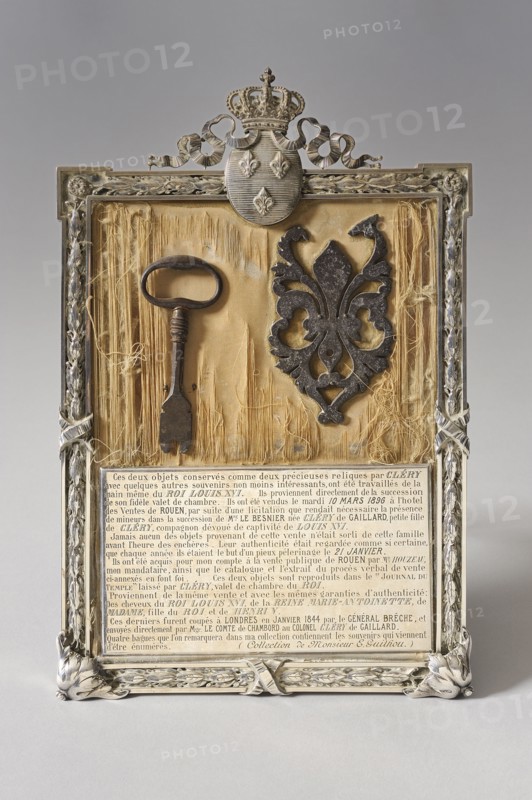 PHOTO12
Ces deux objets conservés comme deux précieuses reliques par CLÉRY
avec quelques autres souvenirs non moins intéressants, ont été travaillés de la
main même du ROI LOUIS XVI. Ils proviennent directement de la succession
de son fidèle valet de chambre. Ils ont été vendus le mardi 10 MARS 1896 à l'hôtel
des Ventes de ROUEN, par suite d'une licitation que rendait nécessaire la présence
de mineurs dans la succession de Mme LE BESNIER née CLÉRY de GAILLARD, petite fille
de CLÉRY, compagnon dévoué de captivité de LOUIS XVI.
Jamais aucun des objets provenant de cette vente n'était sorti de cette famille
avant l'heure des enchères. Leur authenticité était regardée comme si certaine,
que chaque année ils étaient le but d'un pieux pèlerinage le 21 JANVIER.
Ils ont été acquis pour mon compte à la vente publique de ROUEN par Mr HOUZEAU,
mon mandataire, ainsi que le catalogue et l'extrait du procès verbal de vente
ci-annexés en font foi. Ces deux objets sont reproduits dans le "JOURNAL DU
TEMPLE" laissé par CLÉRY, valet de chambre du ROI.
Proviennent de la même vente et avec les mêmes garanties d'authenticité:
les cheveux du ROI LOUIS XVI, de la REINE MARIE-ANTOINETTE, de
MADAME, fille du ROI et de HENRI V.
Ces derniers furent coupés à LONDRES en JANVIER 1844 par le GÉNÉRAL BRÈCHE, et
envoyés directement par Mgr LE COMTE de CHAMBORD au COLONEL CLÉRY de GAILLARD.
Quatre bagues que l'on remarquera dans ma collection contiennent les souvenirs qui viennent
d'être énumérés. (Collection de Monsieur E. Guilhou.)